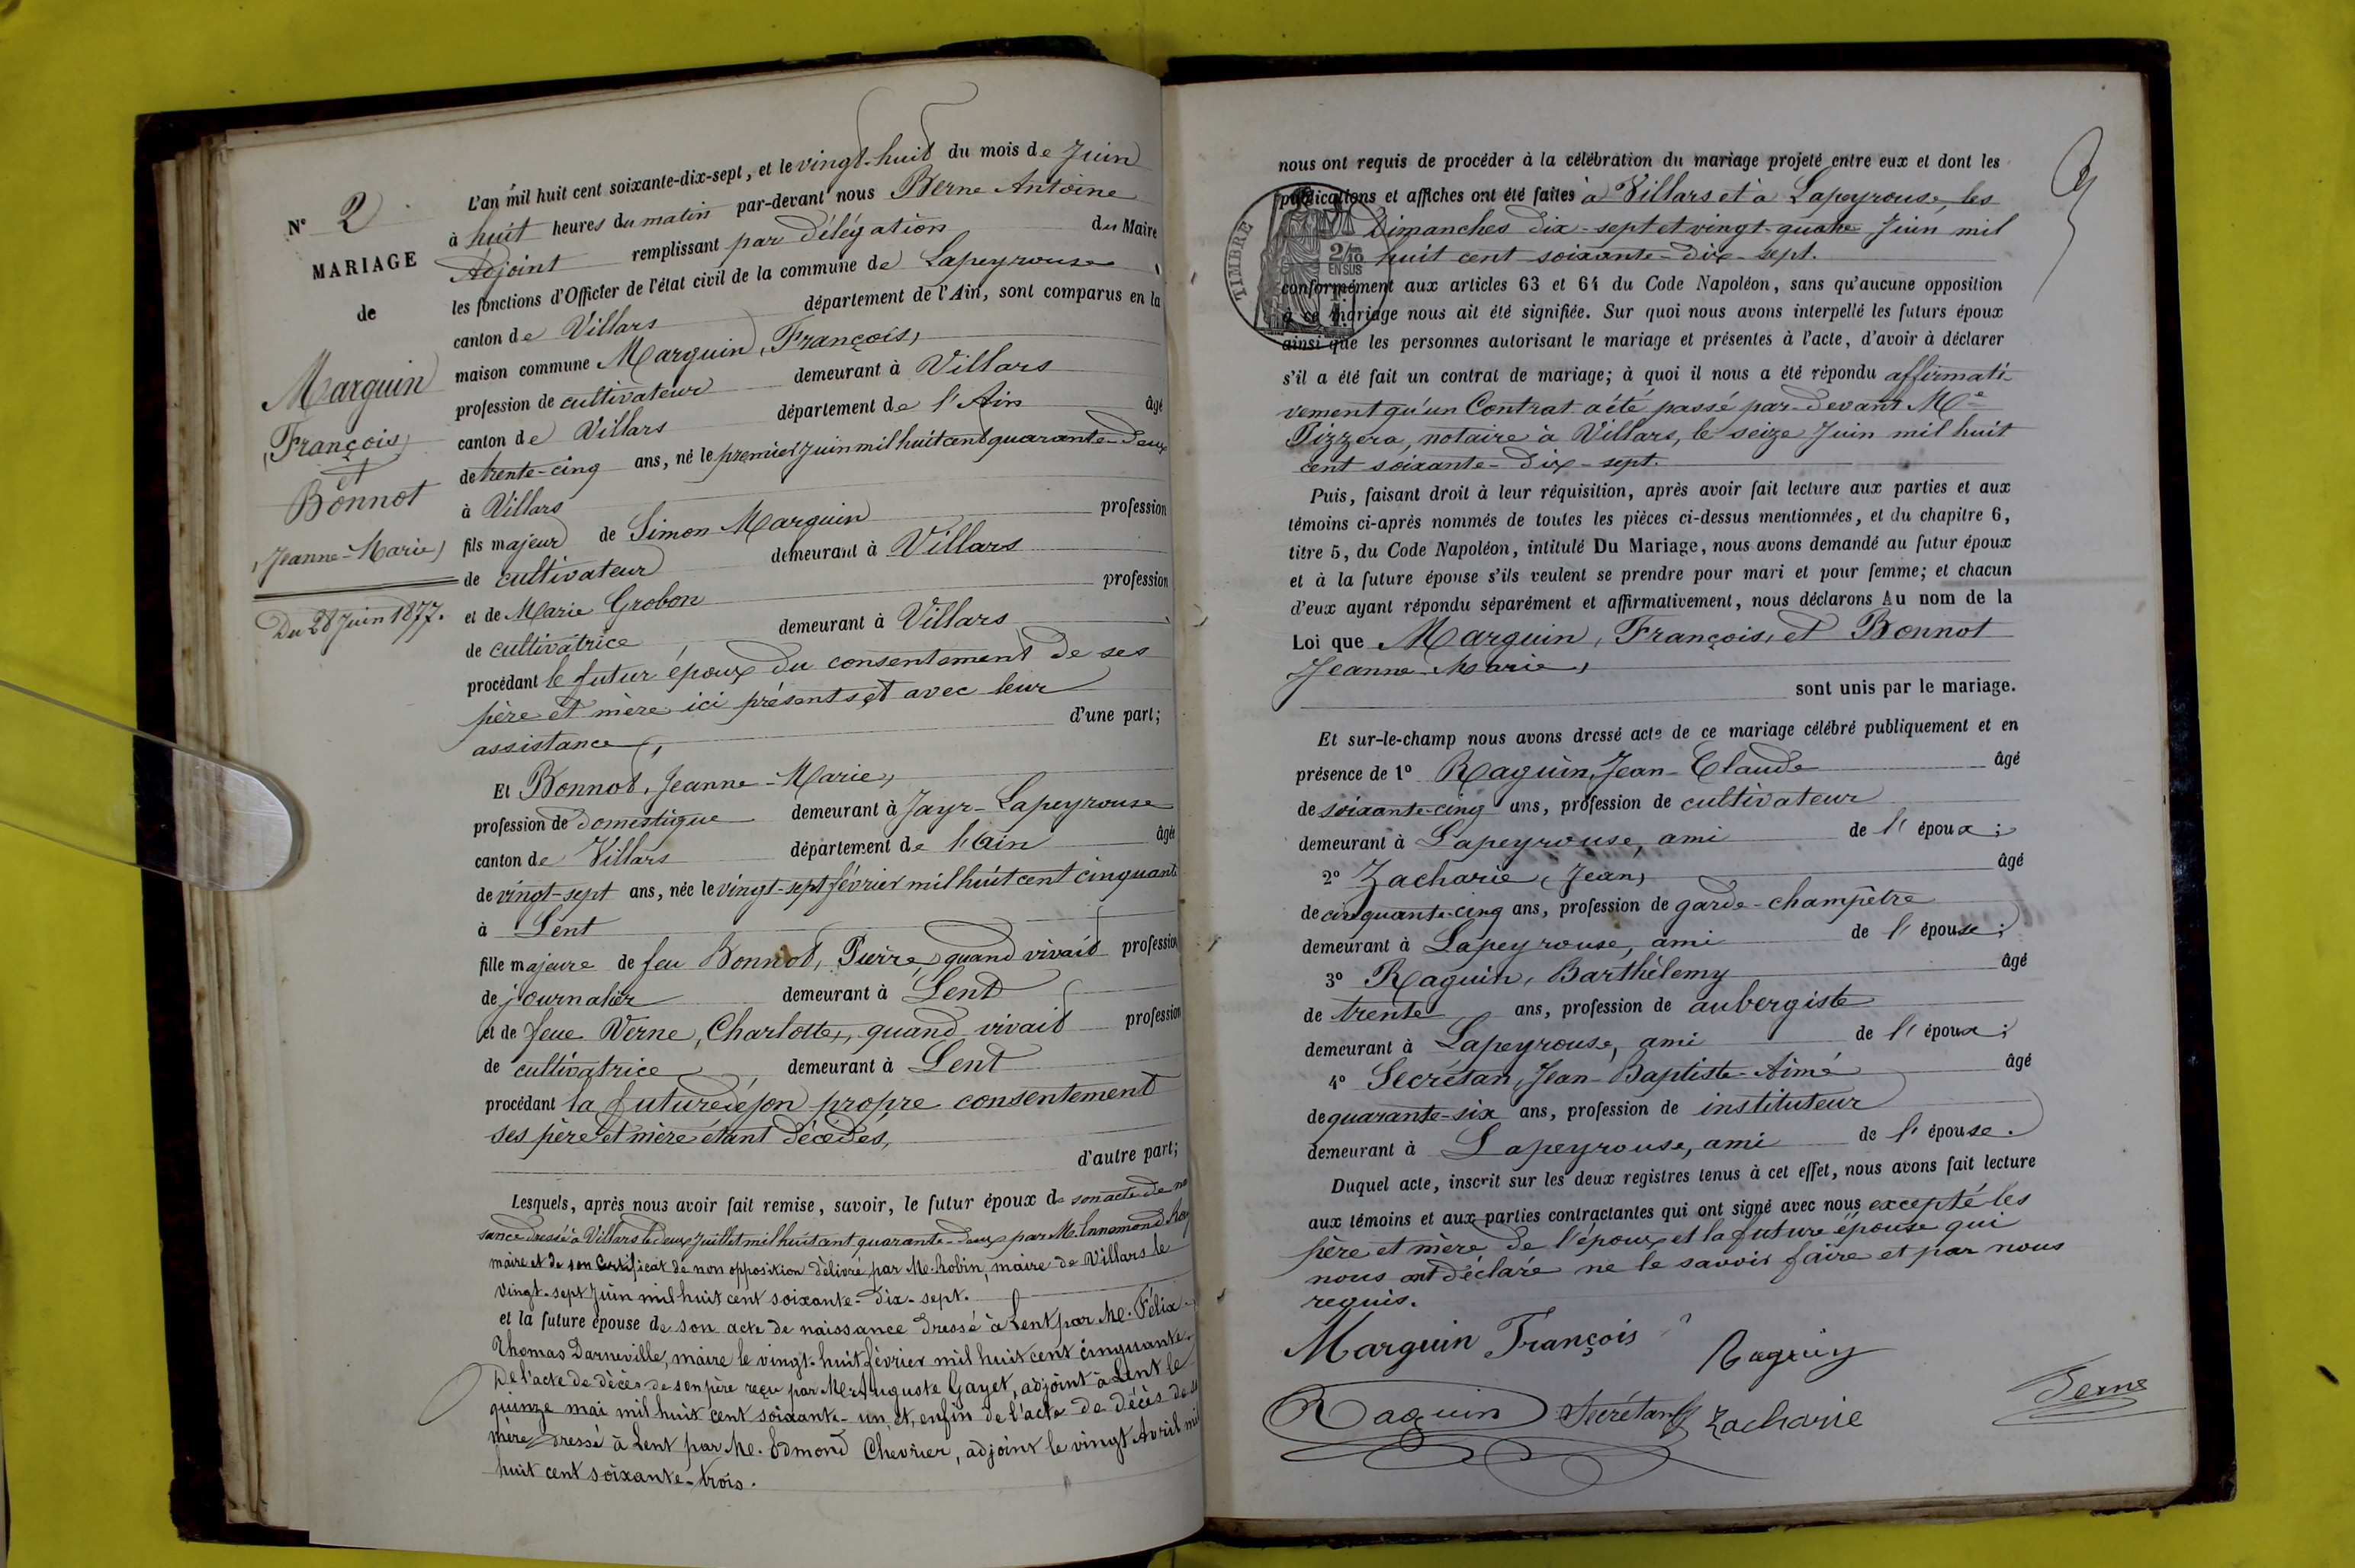 N° 2
MARIAGE
de
Marguin
(François)
et
Bonnot
(Jeanne-Marie)
Du 28 Juin 1877.
L'an mil huit cent soixante-dix-sept, et le vingt-huit du mois de Juin
à huit heures du matin par-devant nous Berne Antoine
Adjoint remplissant par délégation du Maire
les fonctions d'Officier de l'état civil de la commune de Lapeyrouse
canton de Villars département de l'Ain, sont comparus en la
maison commune Marguin, François,
profession de cultivateur demeurant à Villars
canton de Villars département de l'Ain âgé
de trente-cinq ans, né le premier Juin mil huit cent quarante-deux
à Villars
fils majeur de Simon Marguin profession
de cultivateur demeurant à Villars
et de Marie Grobon profession
de cultivatrice demeurant à Villars
procédant le futur époux du consentement de ses
père et mère ici présents et avec leur
assistance, d'une part;
Et Bonnot, Jeanne-Marie,
profession de domestique demeurant à Jayr-Lapeyrouse
canton de Villars département de l'Ain âgée
de vingt-sept ans, née le vingt-sept février mil huit cent cinquante
à Lent
fille majeure de feu Bonnot, Pierre, quand vivait profession
de journalier demeurant à Lent
et de feue Verne, Charlotte, quand vivait profession
de cultivatrice demeurant à Lent
procédant la future de son propre consentement
ses père et mère étant décédés,
d'autre part;
Lesquels, après nous avoir fait remise, savoir, le futur époux de son acte de nais
sance dressé à Villars le deux Juillet mil huit cent quarante-deux par M. Ennemond
maire et de son Certificat de non opposition délivré par Me. Robin, maire de Villars le
vingt-sept Juin mil huit cent soixante-dix-sept.
et la future épouse de son acte de naissance dressé à Lent par Me. Félix
Thomas Darneville, maire le vingt-huit février mil huit cent cinquante.
De l'acte de décès de son père reçu par Me Auguste Gayet, adjoint à Lent le
quinze mai mil huit cent soixante-un, et, enfin de l'acte de décès de sa
mère dressé à Lent par Me. Edmond Chevrier, adjoint le vingt Avril mil
huit cent soixante-trois.
nous ont requis de procéder à la célébration du mariage projeté entre eux et dont les
publications et affiches ont été faites à Villars et à Lapeyrouse, les
Dimanches dix-sept et vingt-quatre Juin mil
huit cent soixante-dix-sept.
TIMBRE
2/10
EN SUS
conformément aux articles 63 et 64 du Code Napoléon, sans qu'aucune opposition
à ce mariage nous ait été signifiée. Sur quoi nous avons interpellé les futurs époux
ainsi que les personnes autorisant le mariage et présentes à l'acte, d'avoir à déclarer
s'il a été fait un contrat de mariage; à quoi il nous a été répondu affirmati-
vement qu'un Contrat a été passé par-devant Me
Pizzera, notaire à Villars, le seize Juin mil huit
cent soixante-dix-sept.
Puis, faisant droit à leur réquisition, après avoir fait lecture aux parties et aux
témoins ci-après nommés de toutes les pièces ci-dessus mentionnées, et du chapitre 6,
titre 5, du Code Napoléon, intitulé Du Mariage, nous avons demandé au futur époux
et à la future épouse s'ils veulent se prendre pour mari et pour femme; et chacun
d'eux ayant répondu séparément et affirmativement, nous déclarons Au nom de la
Loi que Marguin, François, et Bonnot
Jeanne-Marie,
sont unis par le mariage.
Et sur-le-champ nous avons dressé acte de ce mariage célébré publiquement et en
présence de 1° Raguin, Jean-Claude âgé
de soixante-cinq ans, profession de cultivateur
demeurant à Lapeyrouse, ami de l'époux;
2° Zacharie, (Jean) âgé
de cinquante-cinq ans, profession de garde-champêtre
demeurant à Lapeyrouse, ami de l'épouse;
3° Raguin, Barthélemy âgé
de trente ans, profession de aubergiste
demeurant à Lapeyrouse, ami de l'époux;
4° Secrétan, Jean-Baptiste-Aimé âgé
de quarante-six ans, profession de instituteur
demeurant à Lapeyrouse, ami de l'épouse.
Duquel acte, inscrit sur les deux registres tenus à cet effet, nous avons fait lecture
aux témoins et aux parties contractantes qui ont signé avec nous excepté les
père et mère de l'époux et la future épouse qui
nous ont déclaré ne le savoir faire et par nous
requis.
Marguin François
Raguin
Raguin Secrétan Zacharie
Berne